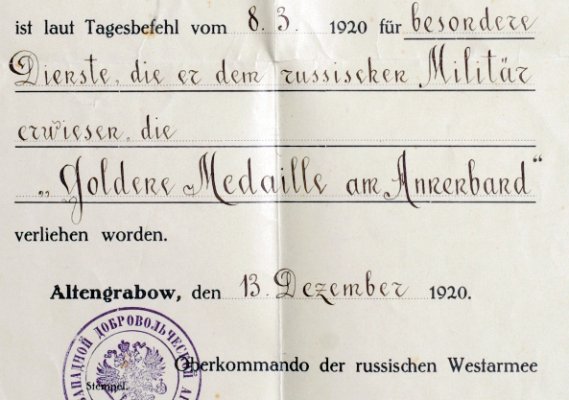 ist laut Tagesbefehl vom 8. 3. 1920 für besondere
Dienste, die er dem russischen Militär
erwiesen, die
„Goldene Medaille am Annenband“
verliehen worden.
Altengrabow, den 13. Dezember 1920.
ЗАПАДНОЙ ДОБРОВОЛЬЧЕСКОЙ
Oberkommando der russischen Westarmee
Stempel.